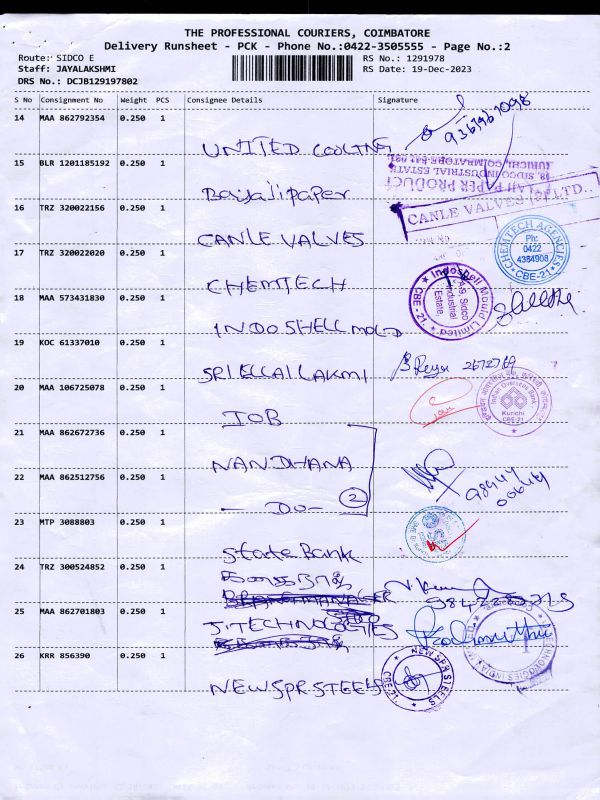 THE PROFESSIONAL COURIERS, COIMBATORE
Delivery Runsheet - PCK - Phone No.:0422-3505555 - Page No.:2
Route: SIDCO E
RS No.: 1291978
Staff: JAYALAKSHMI
RS Date: 19-Dec-2023
DRS No.: DCJB129197802
S No Consignment No Weight PCS Consignee Details Signature
14 MAA 862792354 0.250 1
UNITED COOLING
15 BLR 1201185192 0.250 1
48, SIDCO INDUSTRIAL ESTATE
KURICHI, COIMBATORE-641 021.
Baijalipaper
16 TRZ 320022156 0.250 1
CANLE VALVES (P) LTD.
CANLE VALVES
17 TRZ 320022020 0.250 1
CHEMTECH AGENCIES
Ph:
0422
4384908
CBE-21
CHEMTECH
18 MAA 573431830 0.250 1
Indoshell Mould Limited
A-9, Sidco
Industrial
Estate,
CBE - 21
INDO SHELL MOLD
19 KOC 61337010 0.250 1
SRI ELLAI LAKMI
2672769
20 MAA 106725078 0.250 1
Indian Overseas Bank
Kurichi
CBE-21
IOB
21 MAA 862672736 0.250 1
NANDHANA
22 MAA 862512756 0.250 1
- DO - 2
23 MTP 3088803 0.250 1
State Bank
24 TRZ 300524852 0.250 1
25 MAA 862701803 0.250 1
J. TECHNOLOGIES
26 KRR 856390 0.250 1
NEW SPR STEELS
CBE-21
NEW SPR STEELS